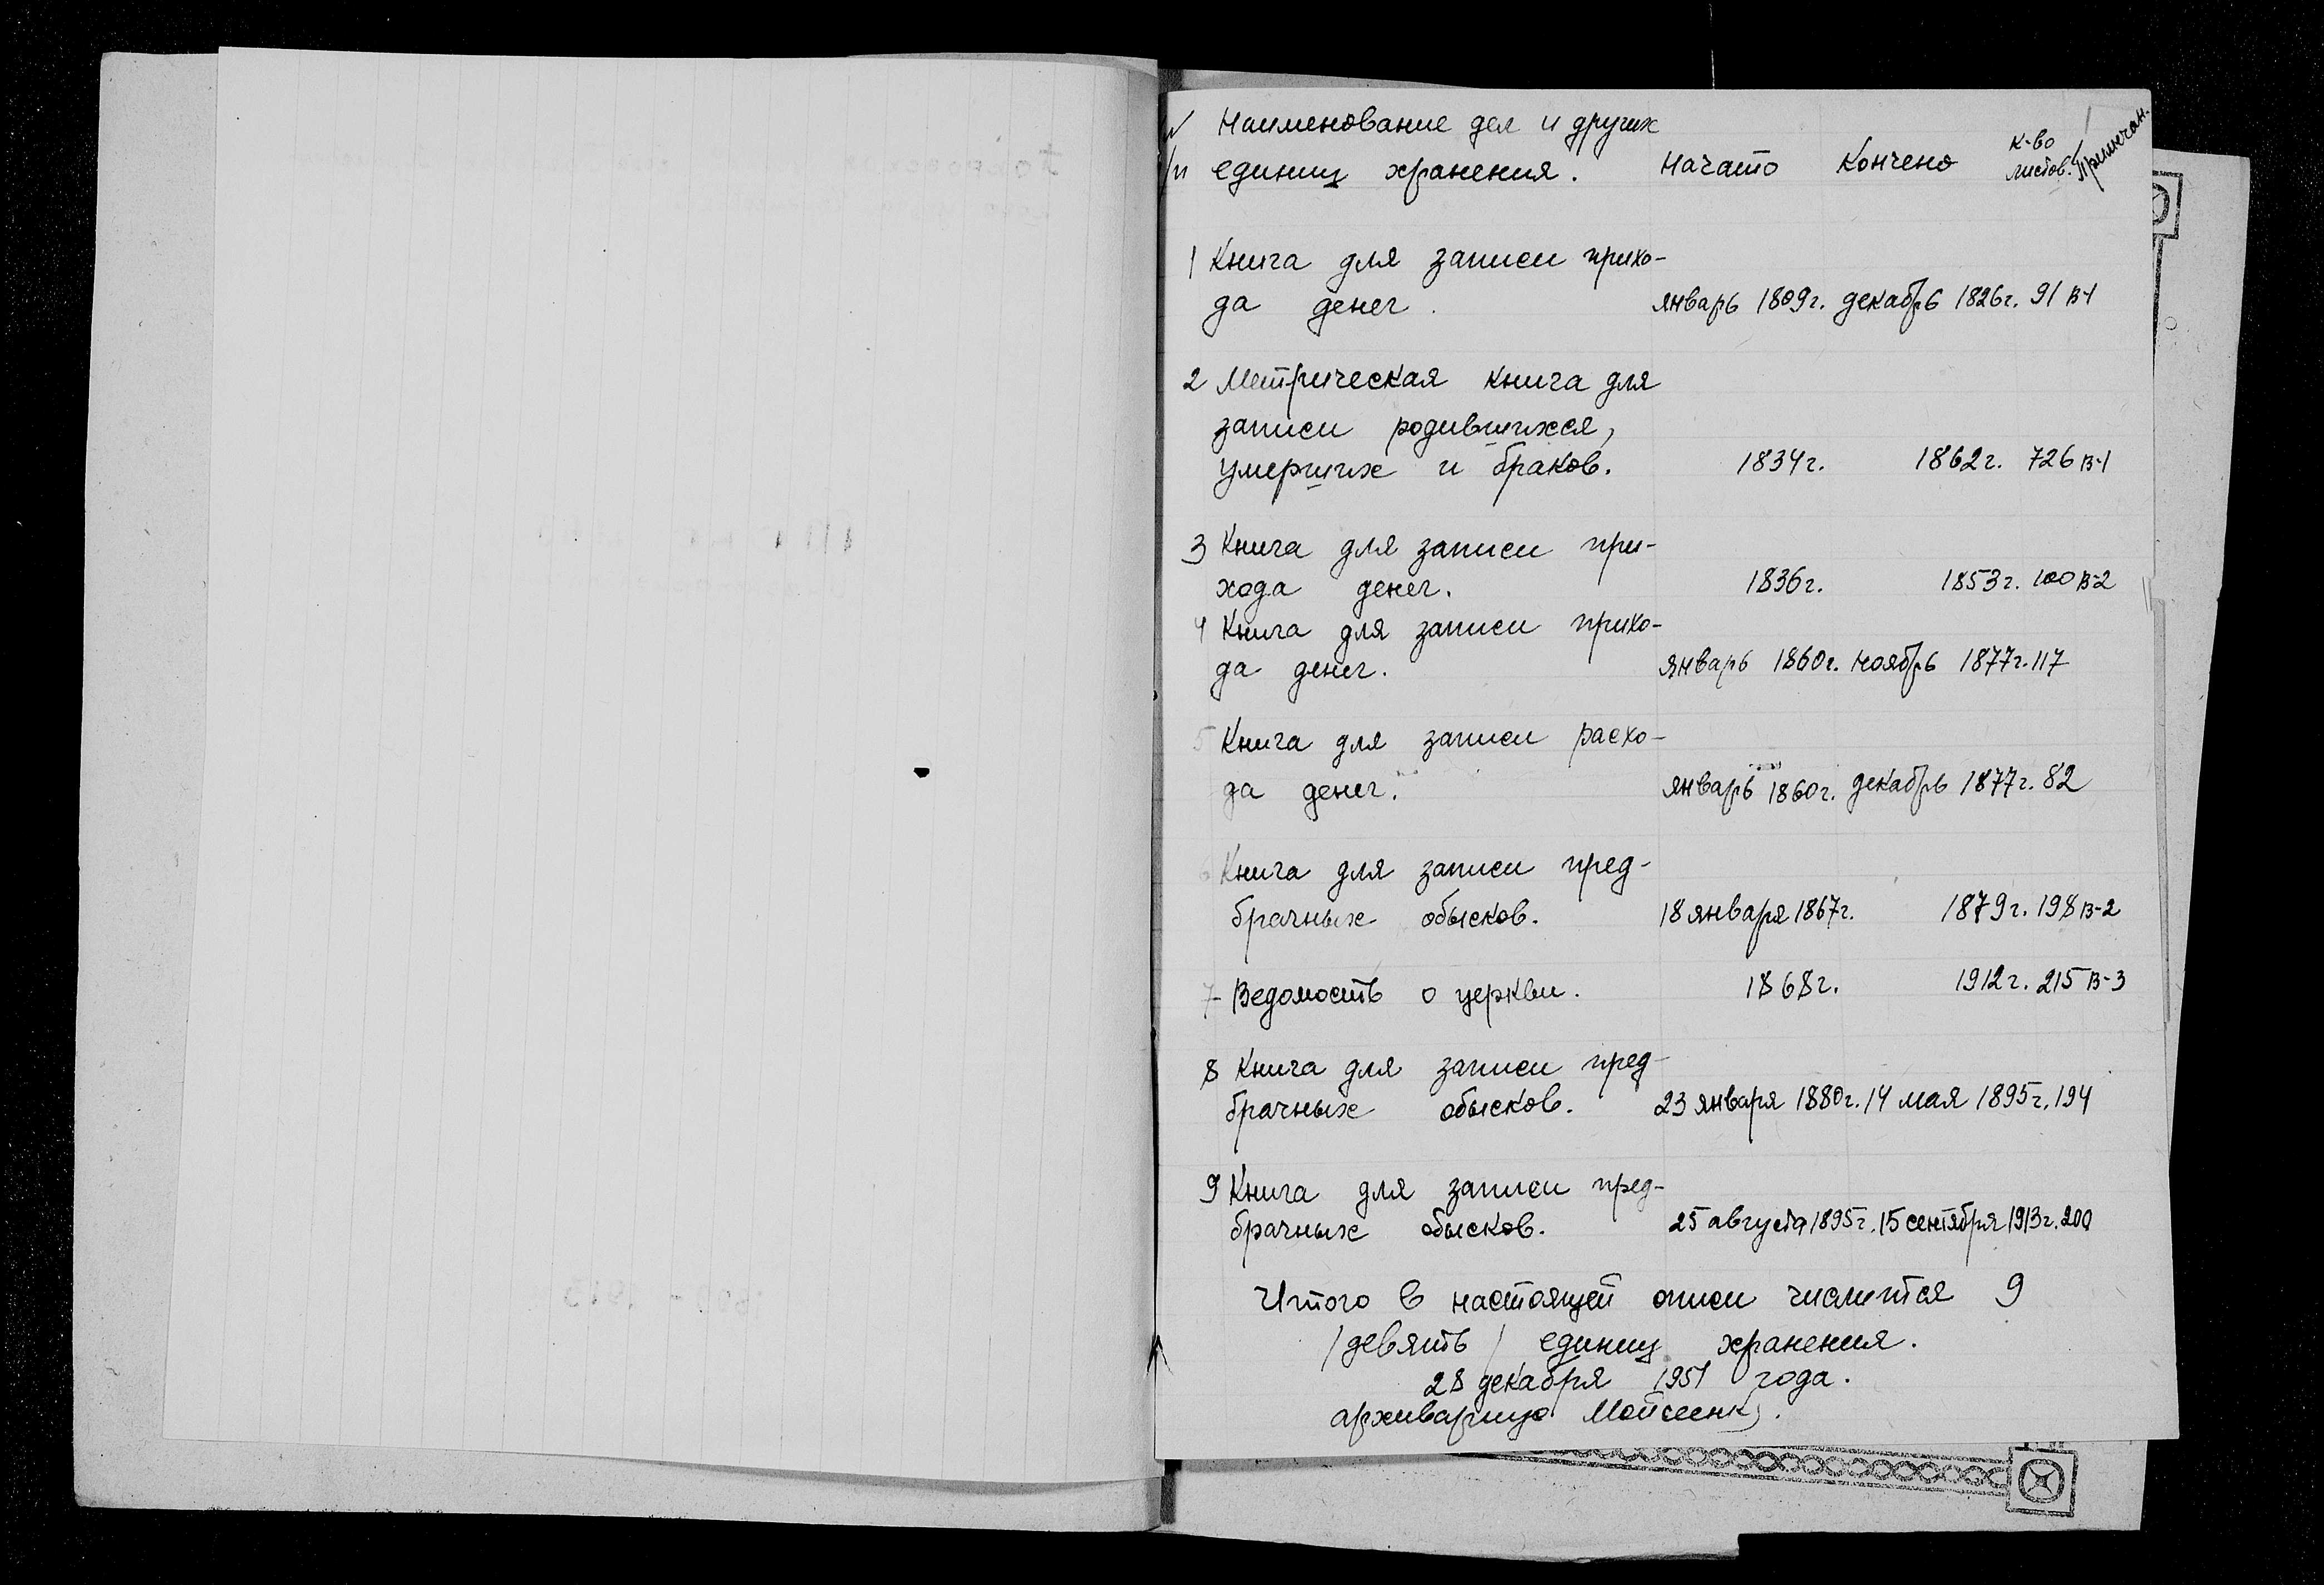 № Наименование дел и других к-во
п/п единиц хранения. Начато Кончено листов. Примечан.
1 Книга для записи прихо-
да денег. январь 1809г. декабрь 1826г. 91 В-1
2 Метрическая книга для
записи родившихся,
умерших и браков. 1834г. 1862г. 726 В-1
3 Книга для записи при-
хода денег. 1836г. 1853г. 100 В-2
4 Книга для записи прихо-
да денег. январь 1860г. ноябрь 1877г. 117
5 Книга для записи расхо-
да денег. январь 1860г. декабрь 1877г. 82
6 Книга для записи пред-
брачных обысков. 18 января 1867г. 1879г. 198 В-2
7 Ведомость о церкви. 1868г. 1912г. 215 В-3
8 Книга для записи пред-
брачных обысков. 23 января 1880г. 14 мая 1895г. 194
9 Книга для записи пред-
брачных обысков. 25 августа 1895г. 15 сентября 1913г. 200
Итого в настоящей описи числится 9
/девять/ единиц хранения.
28 декабря 1951 года.